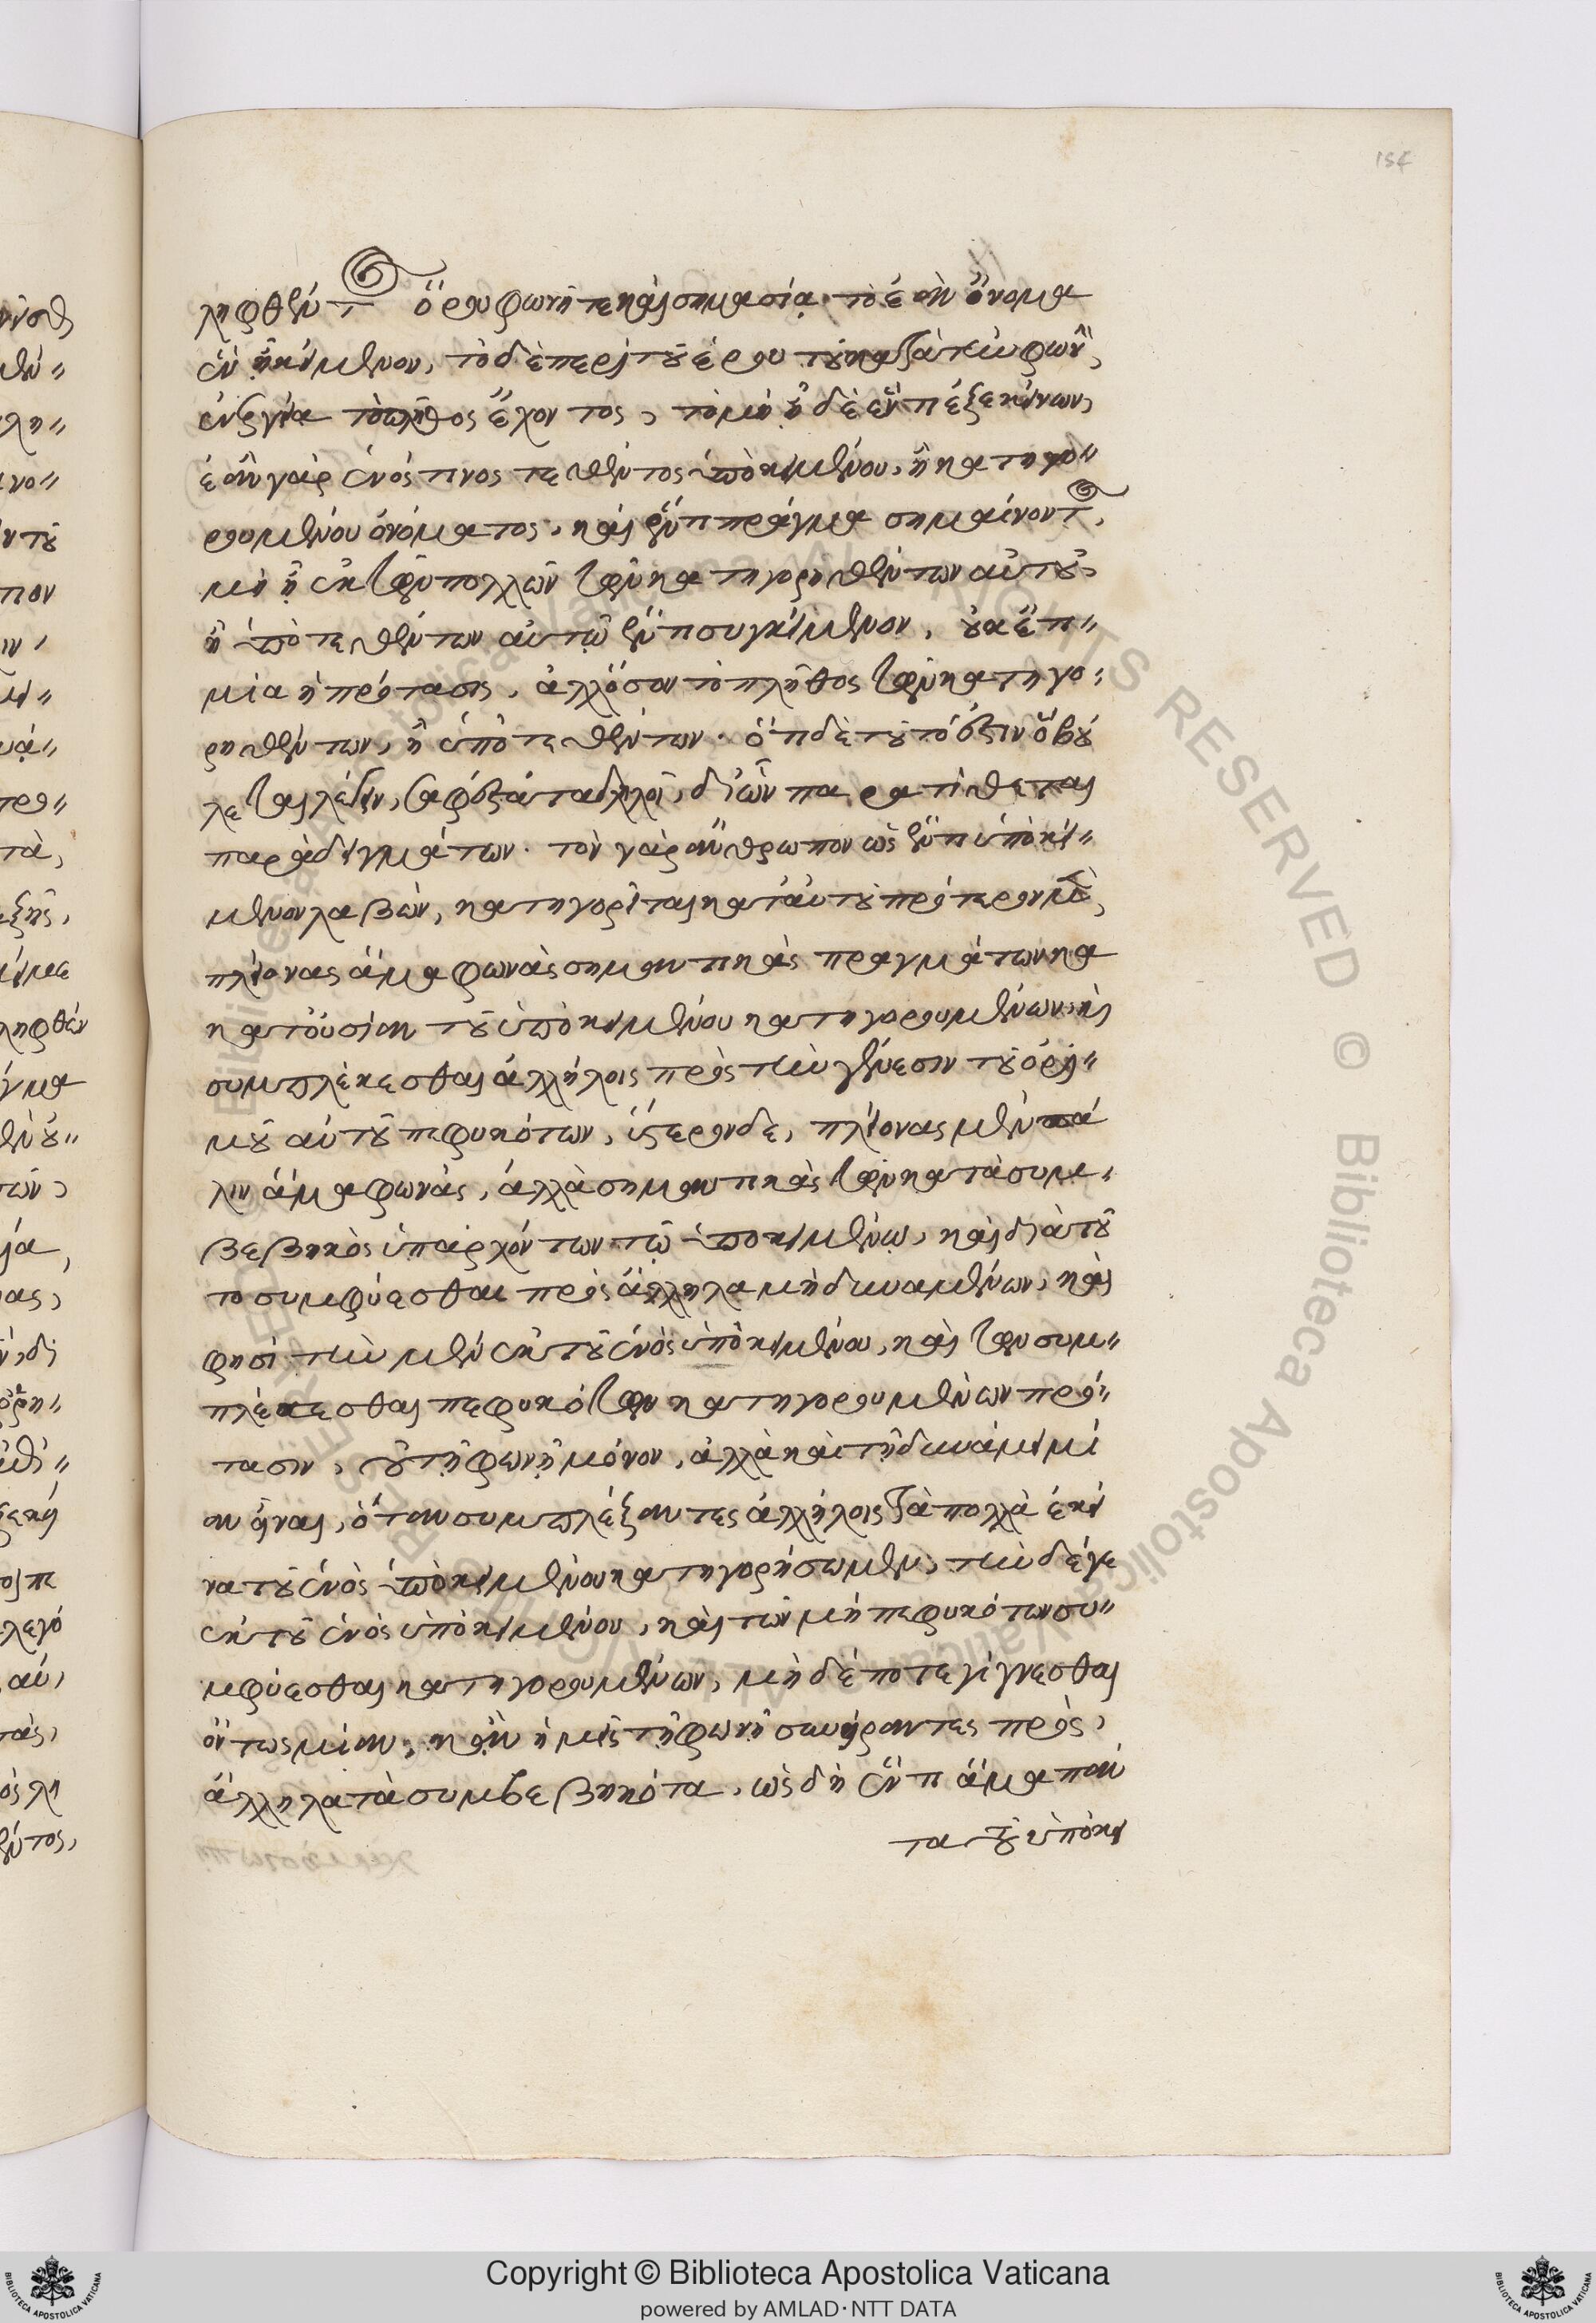 154
ληφθέντ ὅρου φωνῇ τε καὶ σημασίᾳ· τὸ ἐὰν ὄνομα
ἓν ᾖ κείμενον, τὸ δὲ περὶ τοῦ ἑτέρου τοῦ κατὰ τὴν φωνὴν,
ἐνεργείᾳ τὸ πλῆθος ἔχοντος, τὸ μὴ ᾖ δὲ ἓν τι ἐξ ἐκείνων,
ἐὰν γὰρ ἑνός τινος τεθέντος ὑποκειμένου, ἢ κατηγο"
ρουμένου ὀνόματος, καὶ ἕν τι πρᾶγμα σημαίνοντ,
μὴ ᾖ ἐκ τῶν πολλῶν τῶν κατηγορηθέντων αὐτοῦ,
ἢ ὑποτεθέντων αὐτῷ ἕν τι συγκείμενον, οὐκ ἔτι"
μία ἡ πρότασις, ἀλλ' ὅσον τὸ πλῆθος τῶν κατηγο"
ρηθέντων, ἢ ὑποτεθέντων· ὅτι δὲ τοῦτό ἐστιν ὃ βού
λεται λέγειν, σαφέστατα δηλοῖ, δι' ὧν παρατίθεται
παραδειγμάτων· τὸν γὰρ ἄνθρωπον ὡς ἕν τι ὑποκεί"
μενον λαβὼν, κατηγορεῖται κατ' αὐτοῦ πρότερον μὲν,
πλείονας ἅμα φωνὰς σημαντικὰς πραγμάτων κα
κατ' οὐσίαν τοῦ ὑποκειμένου κατηγορουμένων, καὶ
συμπλέκεσθαι ἀλλήλοις πρὸς τὴν γένεσιν τοῦ ὁρισ"
μοῦ αὐτοῦ πεφυκότων, ὕστερον δε, πλείονας μὲν πά
λιν ἅμα φωνὰς, ἀλλὰ σημαντικὰς τῶν κατὰ συμ"
βεβηκὸς ὑπαρχόντων τῷ ὑποκειμένῳ, καὶ διὰ τοῦ
το συμφύεσθαι πρὸς ἄλληλα μὴ δυναμένων, καὶ
φησὶ τὴν μὲν ἐκ τοῦ ἑνὸς ὑποκειμένου, καὶ τῶν συμ"
πλέκεσθαι πεφυκότων κατηγορουμένων πρό"
τασιν, οὐ τῇ φωνῇ μόνον, ἀλλὰ καὶ τῇ δυνάμει μί
αν εἶναι, ὅταν συμπλέξαντες ἀλλήλοις τὰ πολλὰ ἐκεῖ
να τοῦ ἑνὸς ὑποκειμένου κατηγορήσωμεν, τὴν δέ γε
ἐκ τοῦ ἑνὸς ὑποκειμένου, καὶ τῶν μὴ πεφυκότων συ"
μφύεσθαι κατηγορουμένων, μὴ δέποτε γίγνεσθαι
ὄντως μίαν, κἂν ἡμεῖς τῇ φωνῇ συνείραντες πρὸς,
ἄλληλα τὰ συμβεβηκότα, ὡς δὴ ἕν τι ἅμα πάν
τα τοῦ ὑποκει
Copyright © Biblioteca Apostolica Vaticana
powered by AMLAD·NTT DATA